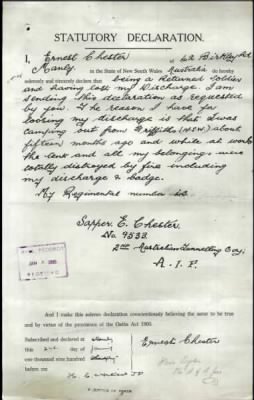 STATUTORY DECLARATION.
I, Ernest Chester of 42 Birkley Rd
Manly in the State of New South Wales Australia do hereby
solemnly and sincerely declare that being a Returned Soldier
and having lost my Discharge. I am
sending this declaration as requested
by you. The reason I have for
loosing my discharge is that I was
camping out from Griffiths (N.S.W.) about
fifteen months ago and while at work
the tent and all my belongings were
totally distroyed by fire including
my discharge & badge.
My Regimental number is
Sapper E. Chester.
No. 9533
2nd Australian Tunnelling Coy.
A. I. F.
And I make this solemn declaration conscientiously believing the same to be true
and by virtue of the provisions of the Oaths Act 1900.
Subscribed and declared at Manly
this 2nd day of
one thousand nine hundred
before me
Ernest Chester